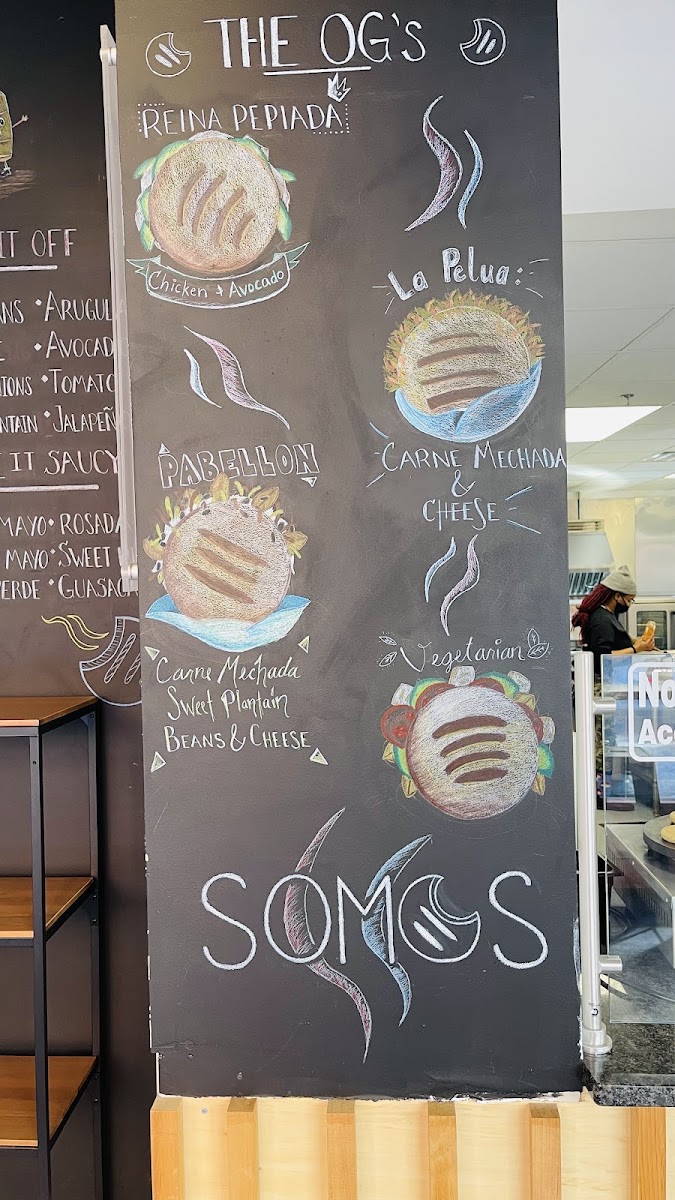 THE OG'S
REINA PEPIADA
Chicken + Avocado
La Pelua
CARNE MECHADA
&
CHEESE
PABELLON
Carne Mechada
Sweet Plantain
BEANS & CHEESE
Vegetarian
SOMOS
IT OFF
• ARUGUL
• AVOCAD
• TOMATO
• JALAPEÑ
IT SAUCY
MAYO • ROSADA
MAYO • SWEET
VERDE • GUASACA
No
Acc